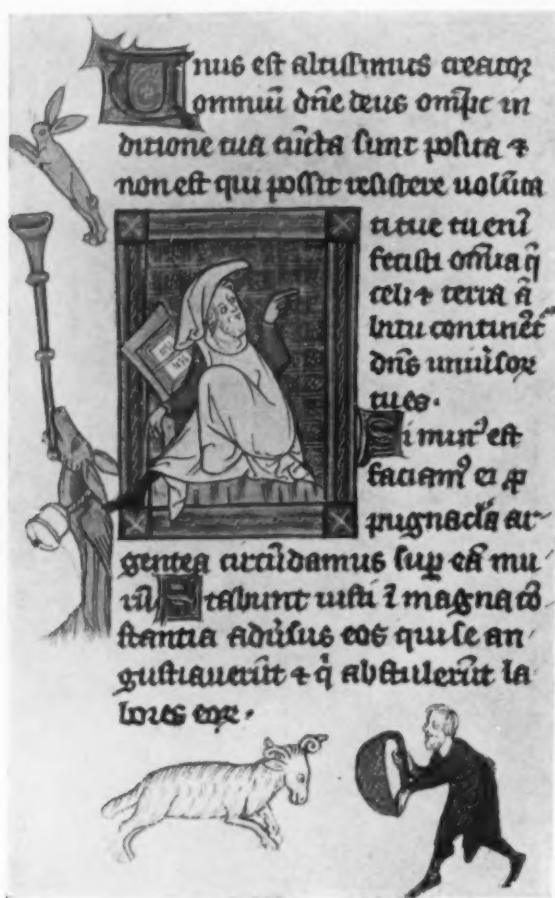 Unus est altissimus creator
omniū dn̄e deus omp̄c in
ditione tua cūcta sunt posita ⁊
non est qui possit resistere uolūta
ti tue tu enī
fecisti om̄ia q̄
celi ⁊ terra ā
bitu continēt
dn̄s uniūsor
tu es.
Si mur᷒ est
faciam᷒ ei ꝓ
pugnac̄la ar-
gentea circūdamus sup̱ eā mu
rū Stabunt iusti ī magna cō
stantia adūsus eos qui se an
gustiauerūt ⁊ q̄ abstulerūt la
bores eoꝝ.